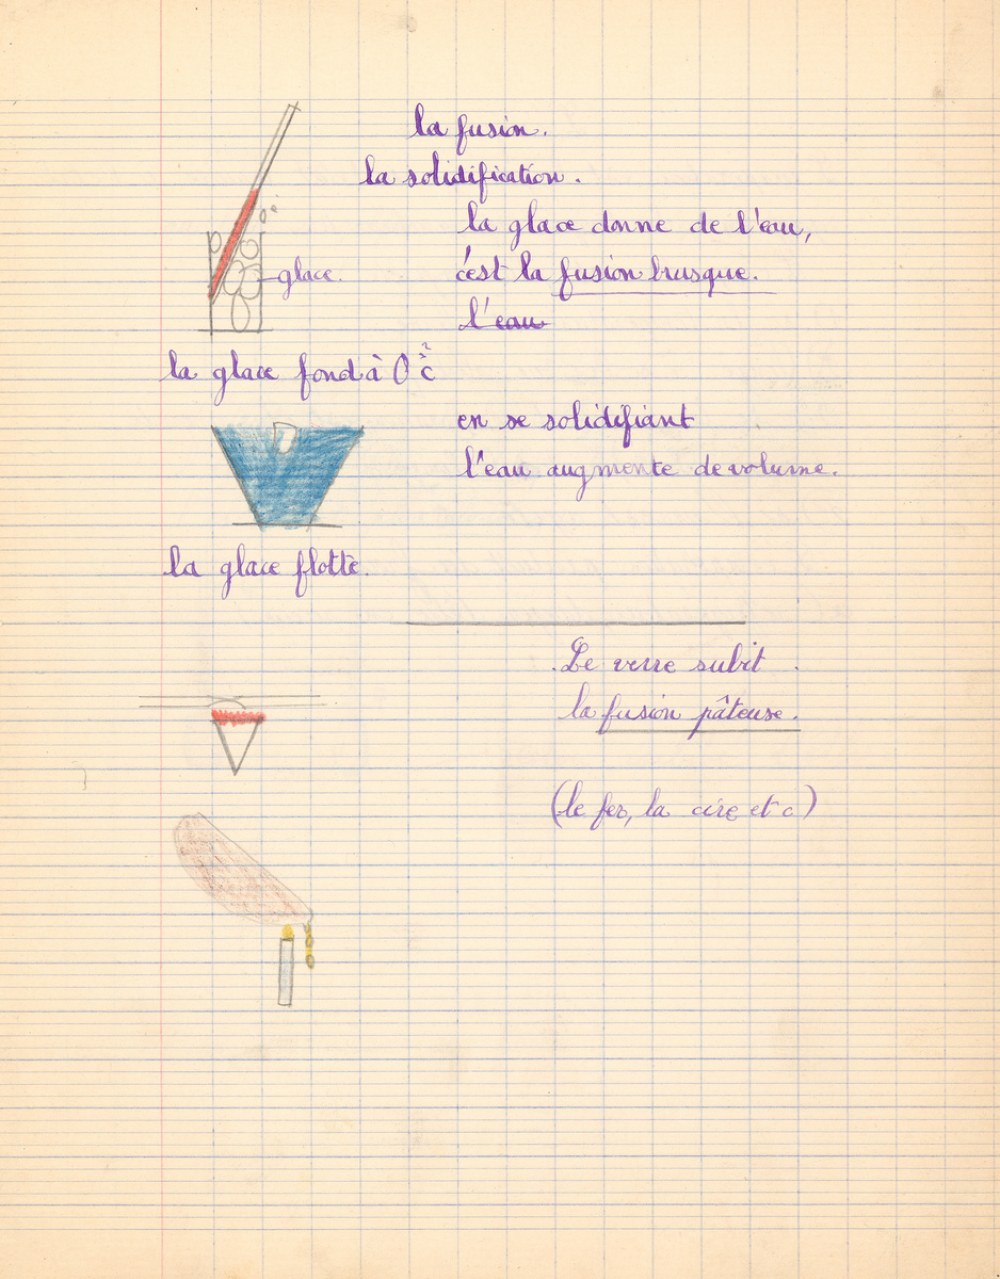 la fusion.
la solidification.
la glace donne de l'eau,
c'est la fusion brusque.
glace.
l'eau
la glace fond à 0°c
en se solidifiant
l'eau augmente de volume.
la glace flotte.
Le verre subit
la fusion pâteuse.
(le fer, la cire etc)